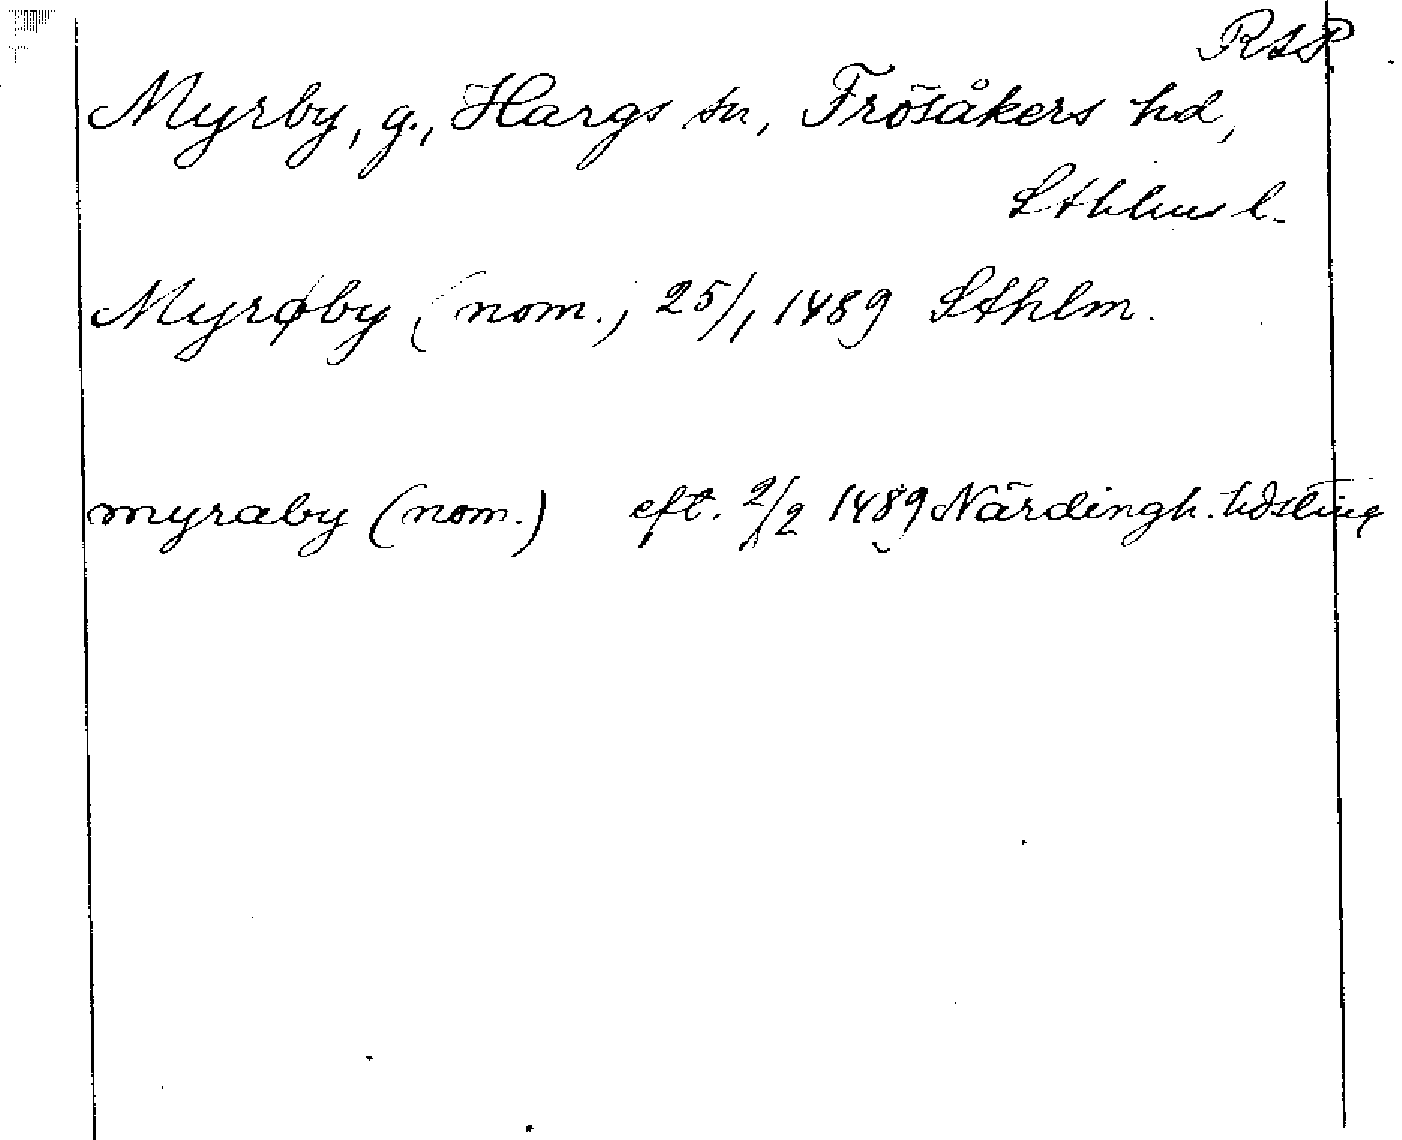 RAP
Myrby, g., Hargs sn, Frösåkers hd,
Sthlms l.
Myrøby (nom., 25/1 1489 Sthlm.
myraby (nom.) eft. 2/2 1489 Närdingh. hdsting